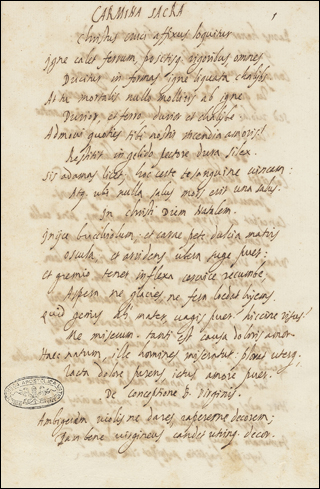 CARMINA SACRA
Christus cruci affixus loquitur
Igne calet ferrum, positisq. rigoribus, omnes
Ducitur in formas igne liquata chalybs
At tu mortalis nullo mollitus ab igne
Durior, et ferro durior et chalybe
Admoui quoties tibi nostri incendia amoris!
Restitit in gelido pectore dura silex.
Sis adamas licet, hoc certe te sanguine vincam:
Atq. ubi nulla salus mors erit una salus.
In Christi Diem Natalem.
Injice brachiolum, et carne pete dulcia matris
oscula et arridens ubera suge puer;
et gremio tenet inflexa ceruice recumbe,
Aspera ne glacies ne fera laedat
Quid gemis ah mater vagis puer.
Me miserum. tanti est causa doloris amor.
Haec natum, ille homines miseratur. pius uterq.
Tacta dolore parens ictus amore puer.
De conceptione B. Virginis.
Ambigeram violis ne dares, rapereme decorem;
Tam bene virgineus candet decor.